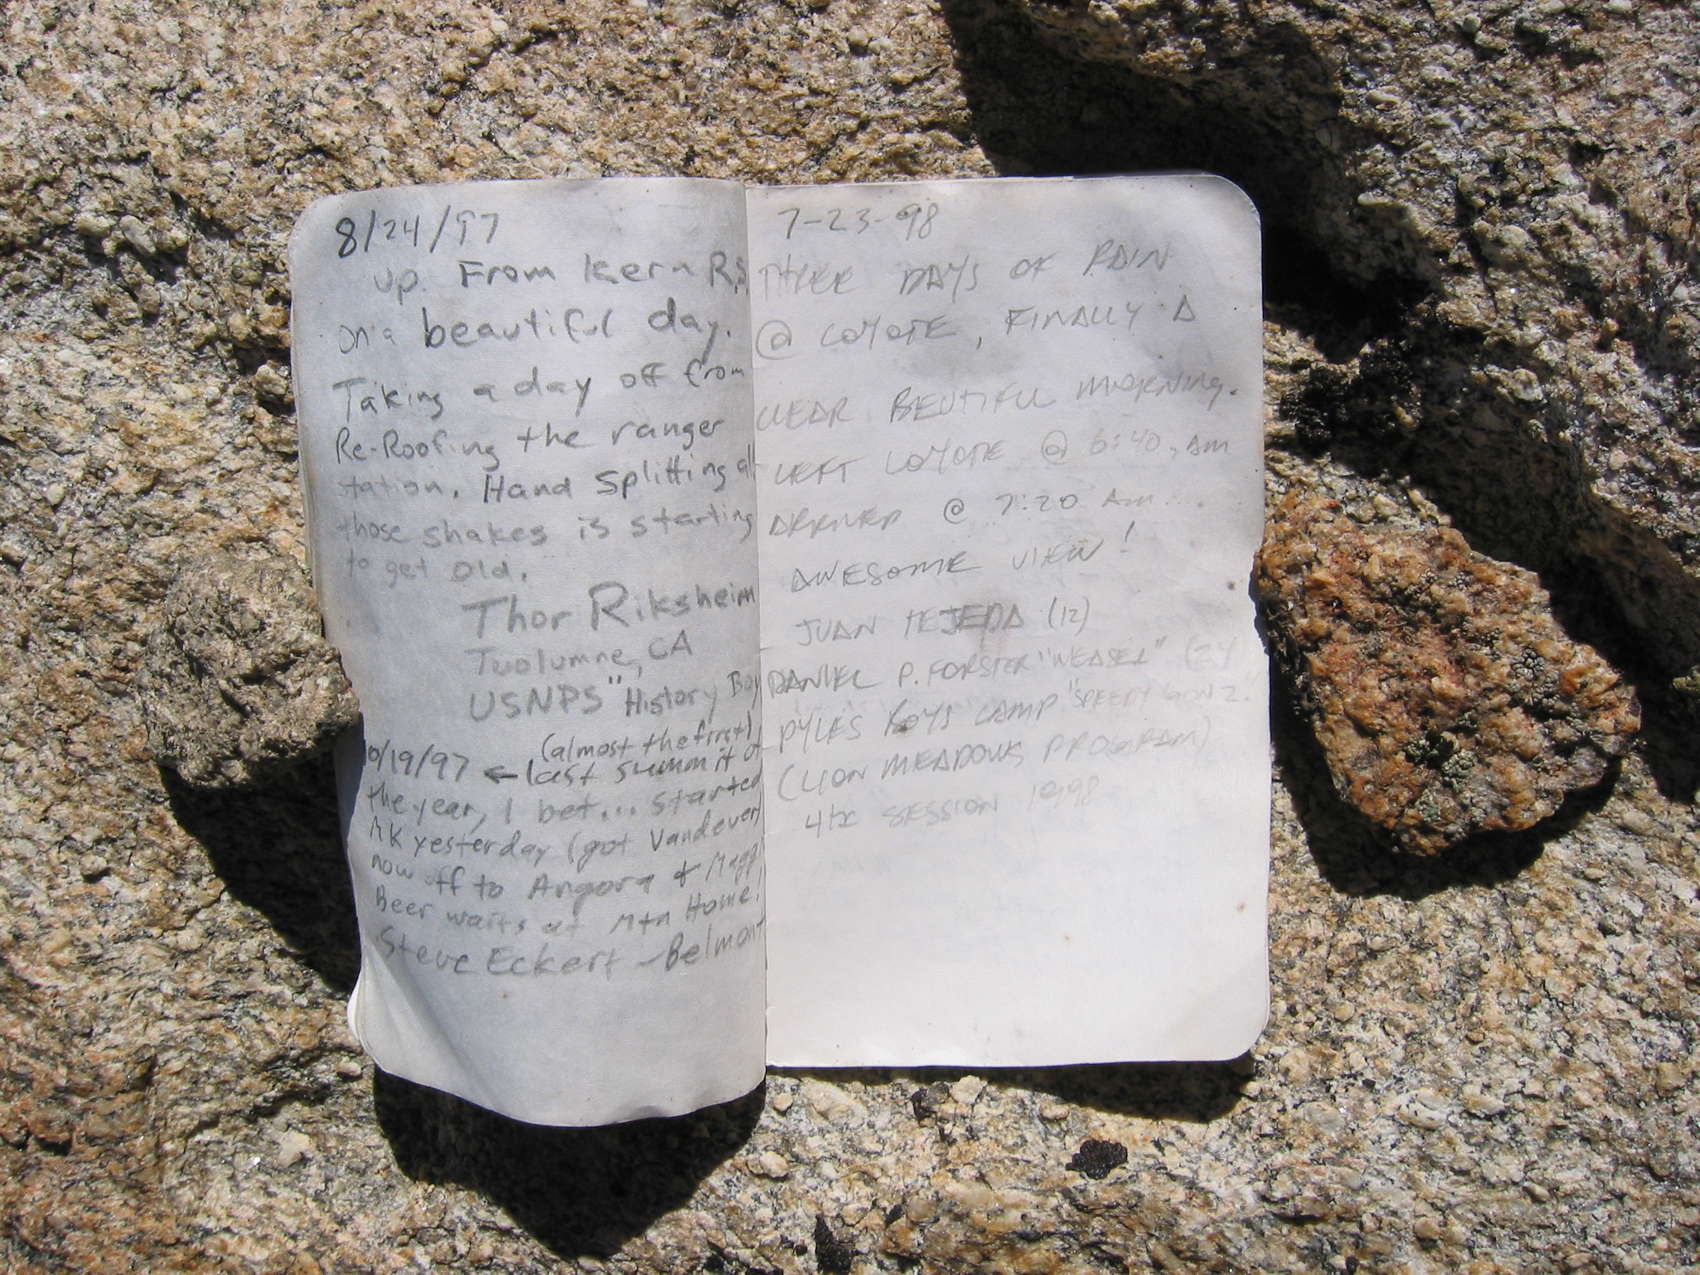 8/24/97
up. From Kern R.S
on a beautiful day.
Taking a day off from
Re-Roofing the ranger
station. Hand Splitting all
those shakes is starting
to get old.
Thor Riksheim
Tuolumne, CA
USNPS "History Boy
(almost the first)
10/19/97 ← last summit of
the year, I bet... started
MK yesterday (got Vandever)
now off to Angora &
Beer waits at Mtn Home.
Steve Eckert - Belmont
7-23-98
THREE DAYS OF RAIN
@ COYOTE, FINALLY A
CLEAR BEUTIFUL MORNING.
LEFT COYOTE @ 6:40, AM
ARRIVED @ 7:20 AM...
AWESOME VIEW!
JUAN TEJEDA (12)
DANIEL P. FORSTER "WEASEL" (24
PYLES BOYS CAMP "SPEEDY GONZ."
(LION MEADOWS PROGRAM)
4th SESSION 1998